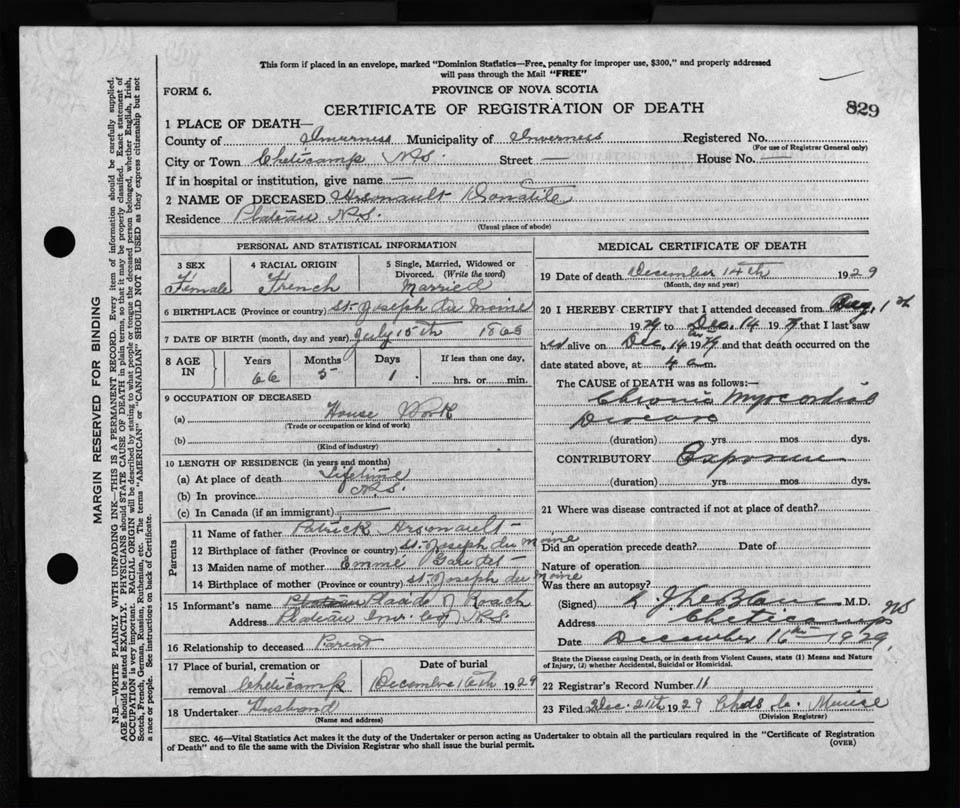 This form if placed in an envelope, marked "Dominion Statistics—Free, penalty for improper use, $300," and properly addressed
will pass through the Mail "FREE"
FORM 6.
PROVINCE OF NOVA SCOTIA
CERTIFICATE OF REGISTRATION OF DEATH
829
1 PLACE OF DEATH—
County of Inverness Municipality of Inverness Registered No.
(For use of Registrar General only)
City or Town Cheticamp N.S. Street — House No. —
If in hospital or institution, give name —
2 NAME OF DECEASED Donatile
Residence Plateau N.S.
(Usual place of abode)
PERSONAL AND STATISTICAL INFORMATION
3 SEX 4 RACIAL ORIGIN 5 Single, Married, Widowed or
Divorced. (Write the word)
Female French Married
6 BIRTHPLACE (Province or country) St. Joseph du Moine
7 DATE OF BIRTH (month, day and year) July 15th 1863
8 AGE IN Years Months Days If less than one day,
66 5 1 hrs. or min.
9 OCCUPATION OF DECEASED
(a) House Work
(Trade or occupation or kind of work)
(b)
(Kind of industry)
10 LENGTH OF RESIDENCE (in years and months)
(a) At place of death Lifetime
(b) In province N.S.
(c) In Canada (if an immigrant) —
Parents
11 Name of father Patrick
12 Birthplace of father (Province or country) St. Joseph du Moine
13 Maiden name of mother Emme Gaudet
14 Birthplace of mother (Province or country) St Joseph du Moine
15 Informant's name Placide Roach
Address Plateau Inv. Co. N.S.
16 Relationship to deceased Parent
17 Place of burial, cremation or Date of burial
removal Cheticamp Decembre 16th 1929
18 Undertaker Husband
(Name and address)
MEDICAL CERTIFICATE OF DEATH
19 Date of death December 14th 1929
(Month, day and year)
20 I HEREBY CERTIFY that I attended deceased from
1929 to Dec. 14 1929 that I last saw
her alive on Dec. 14 1929 and that death occurred on the
date stated above, at 4 a m.
The CAUSE of DEATH was as follows:
Chronic Myocardial
Disease
(duration) yrs. mos. dys.
CONTRIBUTORY Exposure
(duration) yrs. mos. dys.
21 Where was disease contracted if not at place of death?
Did an operation precede death? Date of
Nature of operation
Was there an autopsy?
(Signed) M.D.
Address Cheticamp NS
Date December 16th 1929.
State the Disease causing Death, or in death from Violent Causes, state (1) Means and Nature
of Injury, (2) whether Accidental, Suicidal or Homicidal.
22 Registrar's Record Number 11
23 Filed Dec. 21th 1929
(Division Registrar)
SEC. 46—Vital Statistics Act makes it the duty of the Undertaker or person acting as Undertaker to obtain all the particulars required in the "Certificate of Registration
of Death" and to file the same with the Division Registrar who shall issue the burial permit.
(OVER)
MARGIN RESERVED FOR BINDING
N.B.—WRITE PLAINLY WITH UNFADING INK—THIS IS A PERMANENT RECORD. Every item of information should be carefully supplied.
AGE should be stated EXACTLY. PHYSICIANS should STATE CAUSE OF DEATH in plain terms, so that it may be properly classified. Exact statement of
OCCUPATION is very important. RACIAL ORIGIN will be described by stating to what people or tongue the deceased person belonged, whether English, Irish,
Scotch, French, German, Russian, Ruthenian, etc. The terms "AMERICAN" or "CANADIAN" SHOULD NOT BE USED as they express citizenship but not
a race or people. See instructions on back of Certificate.